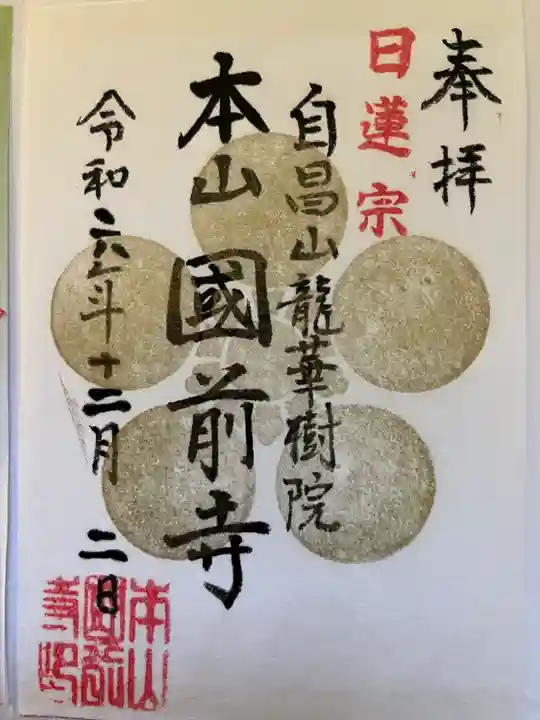 奉拝
日蓮宗
自昌山龍華樹院
本山國前寺
令和六年十二月二日
本山國前寺印